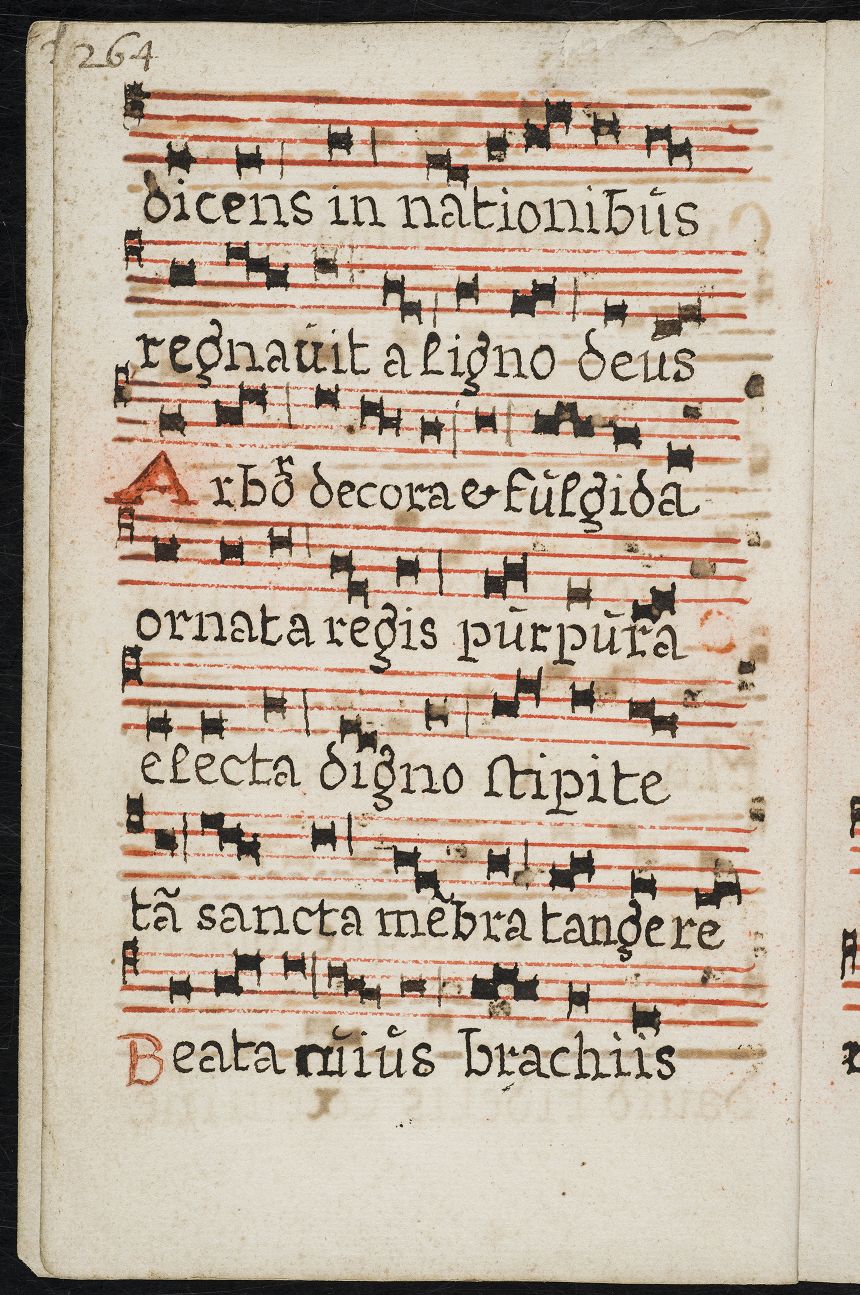 264
dicens in nationibŭs
regnaŭit a ligno deus
Arboʳ decora & fŭlgida
ornata regis pŭrpŭra
electa digno stipite
tã sancta mẽbra tangere
Beata cŭiŭs brachiis